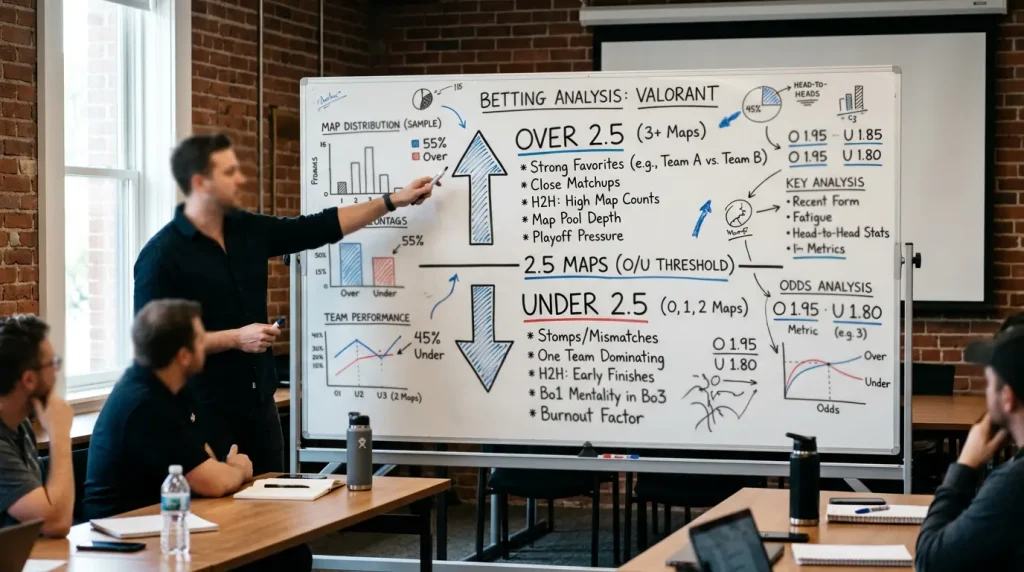 BETTING ANALYSIS: VALORANT
MAP DISTRIBUTION (SAMPLE)
55%
Over
16
0
1 2
55%
50%
15%
Over Under
TEAM PERFORMANCE
40%
30%
20%
15%
45%
Under
01 U2 U3 (2 Maps)
OVER 2.5 (3+ Maps)
* Strong Favorites (e.g., Team A vs. Team B)
* Close Matchups
* H2H: High Map Counts
* Map Pool Depth
* Playoff Pressure
2.5 MAPS (O/U THRESHOLD)
UNDER 2.5 (0, 1, 2 Maps)
* Stomps/Mismatches
* One Team Dominating
* H2H: Early Finishes
* Bo1 Mentality in Bo3
* Burnout Factor
O 1.95
U 1.80
45%
HEAD-TO-
HEADS
C3
O 1.95 - U 1.85
O 1.95 U 1.80
KEY ANALYSIS
• Recent Form
• Fatigue
• Head-to-Head Stats
Metrics
ODDS ANALYSIS
O 1.95 · U 1.80
Metric (e.g. 3)
Over
Under
Odds